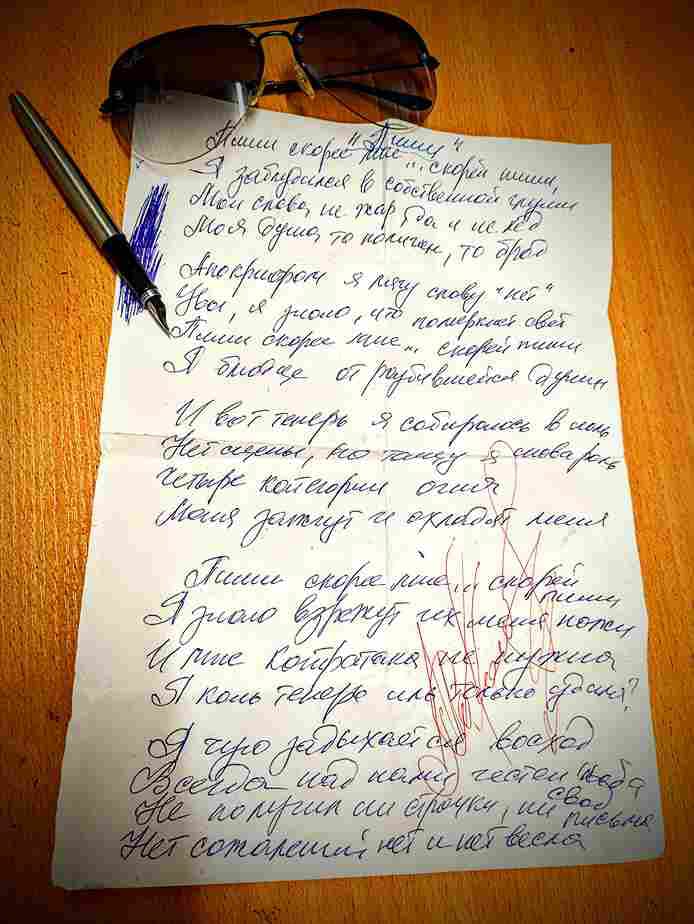 "Пиши"
Пиши скорее мне... скорей пиши,
Я заблудился в собственной глуши
Мои слова не жар да и не лёд
Моя душа, то то брод
Апокрифом я лягу слову "нет"
Увы, я знаю, что померкнет свет
Пиши скорее мне... скорей пиши
Я блюдце от разбившейся души
И вот теперь я собираюсь в
Нет сцены, но я роль
Четыре категории огня
Меня зажгут и охладят меня
Пиши скорее мне... скорей пиши
Я знаю взрежут их меня ножи
И мне не нужна
Я теперь иль только
Я чую задыхается восход
Всегда над нами честен неба свод
Не получил ни строчки, ни письма
Нет сожалений нет и нет весла